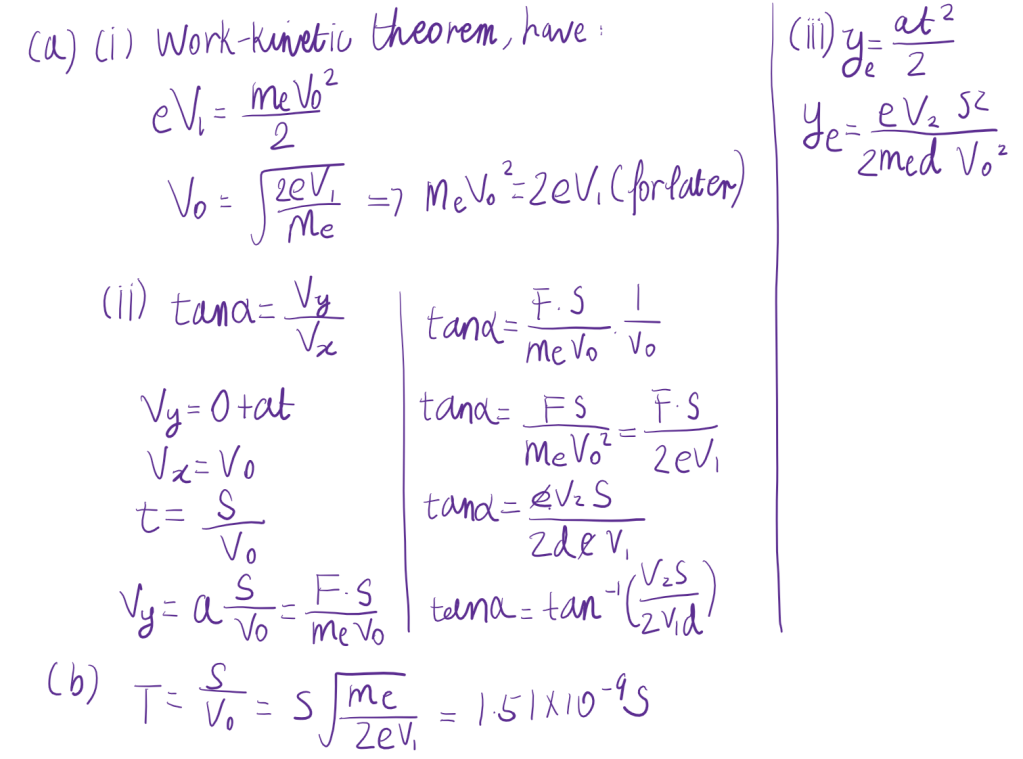 (a) (i) Work-kinetic theorem, have:
eV₁ = mₑV₀²/2
V₀ = √(2eV₁/mₑ) => mₑV₀² = 2eV₁ (for later)
(ii) tanα = Vy/Vx
Vy = 0 + at
Vx = V₀
t = S/V₀
Vy = a S/V₀ = F·S/mₑV₀
tanα = F·S/mₑV₀ · 1/V₀
tanα = FS/mₑV₀² = F·S/2eV₁
tanα = eV₂S/2deV₁
tanα = tan⁻¹(V₂S/2V₁d)
(iii) yₑ = at²/2
yₑ = eV₂ S2/2med V₀²
(b) T = S/V₀ = S√(me/2eV₁) = 1.51×10⁻⁹S